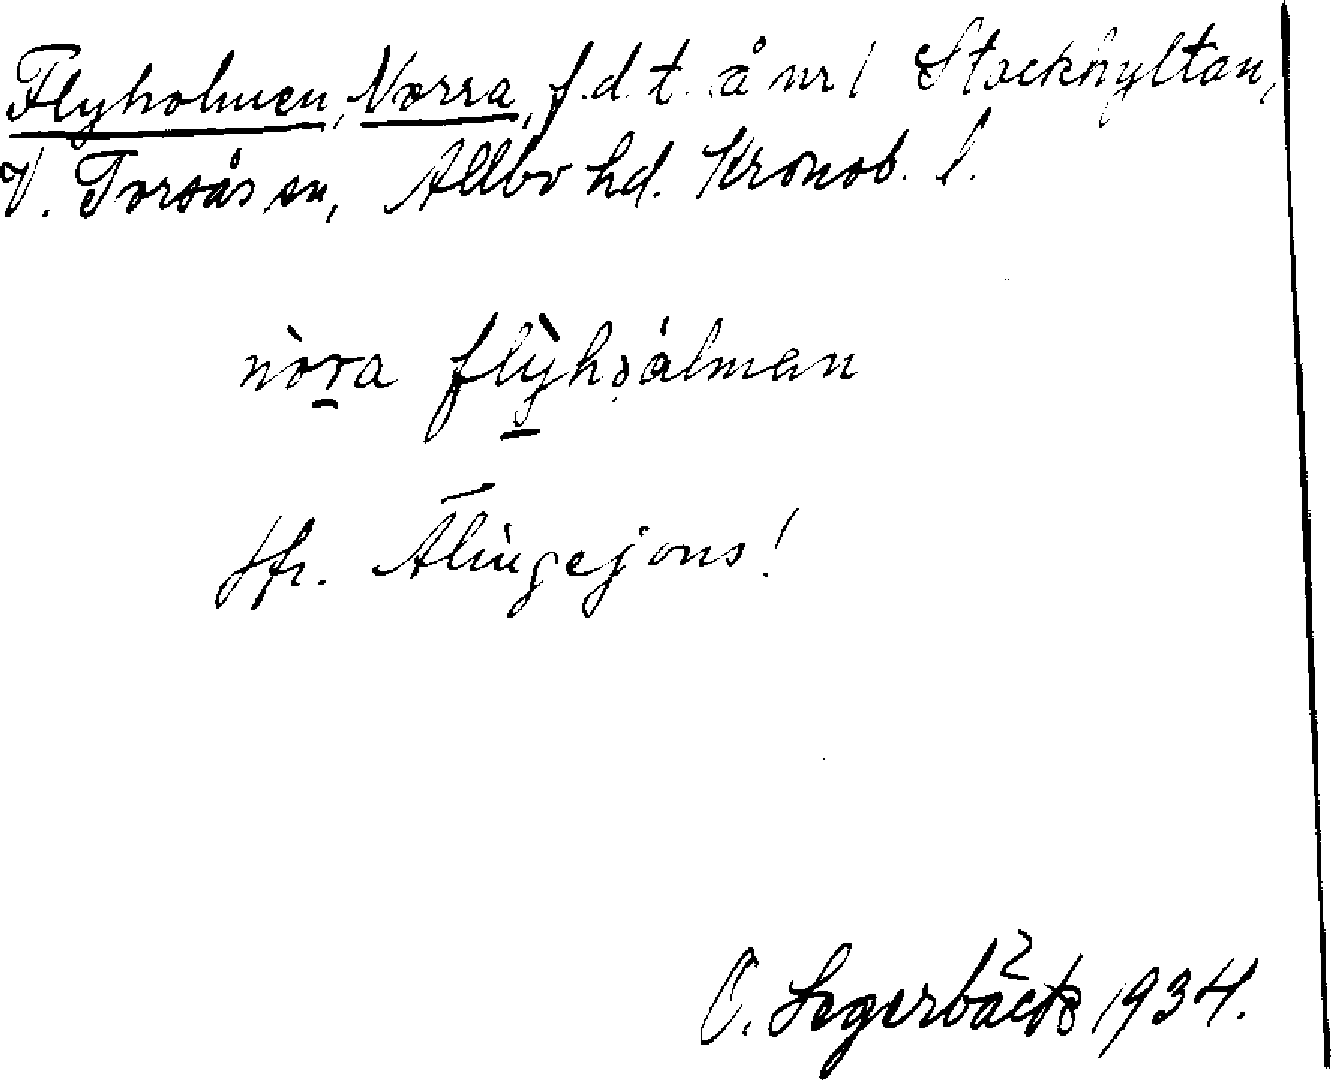 Flyholmen, Norra, f.d. t. å nr 1 Stockhyltan,
V. Torsås sn, Allbo hd. Kronob. l.
nòra flỳhoálman
Jfr. Älingejons!
O. Segerbäck 1934.